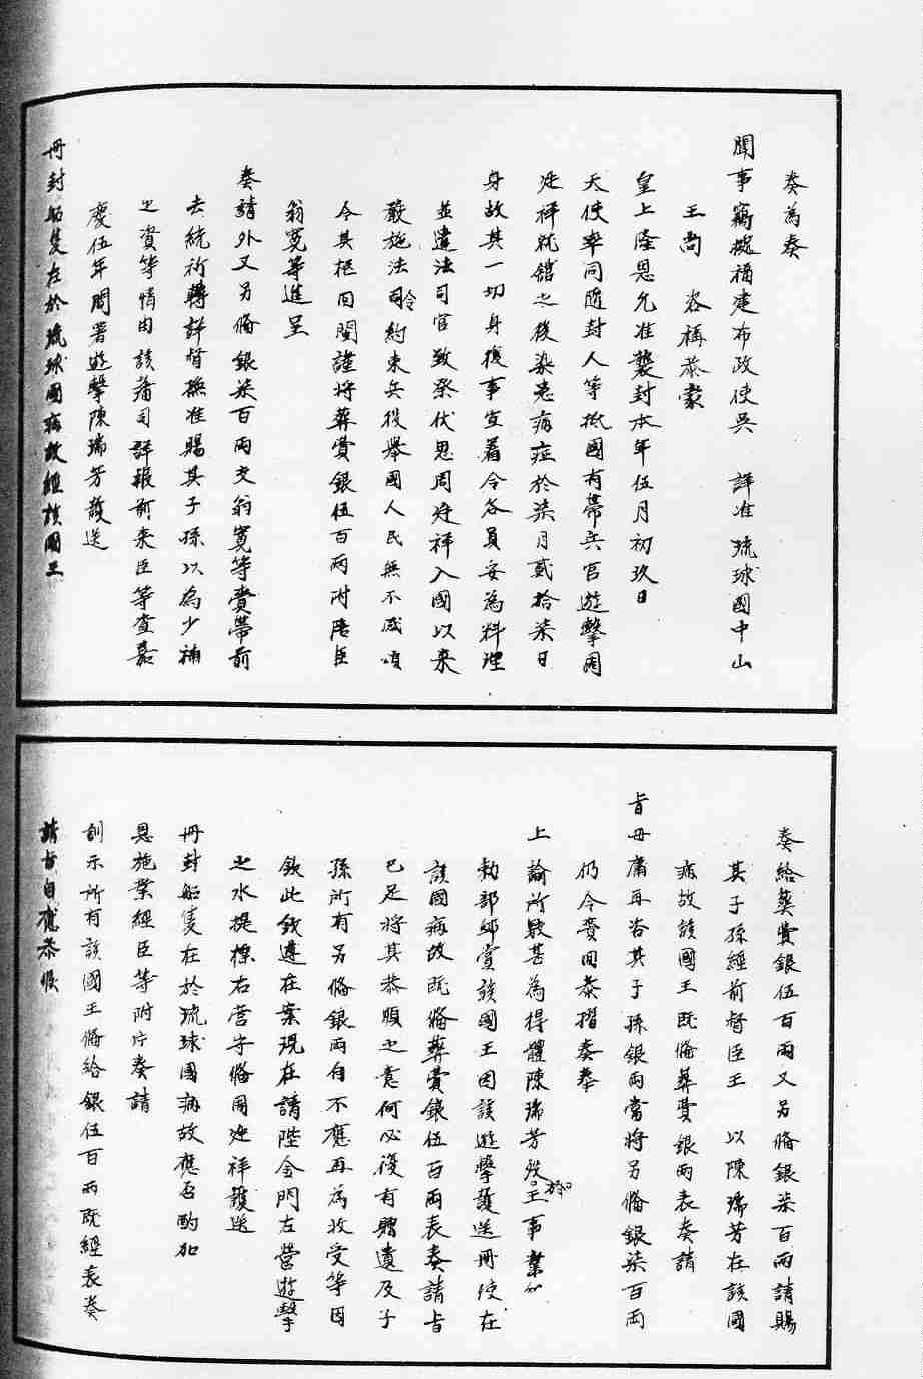 奏為奏
聞事竊據福建布政使吳　詳准琉球國中山
王尚　咨稱恭蒙
皇上隆恩允准襲封本年伍月初玖日
天使率同隨封人等抵國有帶兵官遊擊周
廷祥就館之後染患病症於柒月貳拾柒日
身故其一切身後事宜着令各員妥為料理
並遣法司官致祭伏思周廷祥入國以來
嚴施法令約束兵役舉國人民無不感頌
今其柩回閩謹將葬賫銀伍百兩附陪臣
翁寬等進呈
奏請外又另俻銀柒百兩交翁寬等賫帶前
去統祈轉詳督撫准賜其子孫以為少補
之資等情由該藩司詳報前來臣等查嘉
慶伍年間署遊擊陳瑞芳護送
冊封船隻在於琉球國病故經該國王
奏給葬費銀伍百兩又另俻銀柒百兩請賜
其子孫經前督臣王　以陳瑞芳在該國
病故該國王既俻葬費銀兩表奏請
旨毋庸再咨其子孫銀兩當將另俻銀柒百兩
仍令賫回恭摺奏奉
上諭所駁甚為得體陳瑞芳歿於王事業加
勅部郧賞該國王因該遊擊護送冊使在
該國病故既俻葬賫銀伍百兩表奏請旨
已足將其恭順之意何必復有贈遺及子
孫所有另俻銀兩自不應再為收受等因
欽此欽遵在案現在請陞金門左營遊擊
之水提標右營守俻周廷祥護送
冊封船隻在於琉球國病故應否酌加
恩施業經臣等附片奏請
訓示所有該國王俻給銀伍百兩既經表奏
請旨自應恭候